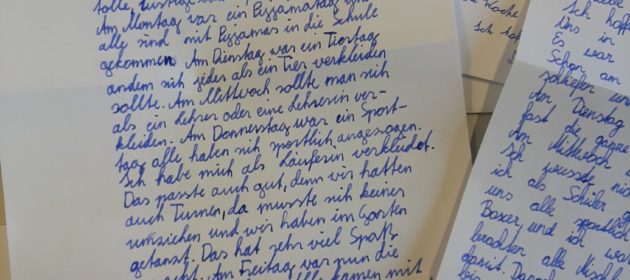 tolle, lustige
Am Montag war ein Pyjamatag und
alle sind mit Pyjamas in die Schule
gekommen. Am Dienstag war ein Tiertag
andem sich jeder als ein Tier verkleiden
sollte. Am Mittwoch sollte man sich
als ein Lehrer oder eine Lehrerin ver-
kleiden. Am Donnerstag war ein Sport-
tag alle haben sich sportlich angezogen.
Ich habe mich als Läuferin verkleidet.
Das passte auch gut, denn wir hatten
auch Turnen, da musste sich keiner
umziehen und wir haben im Garten
getanzt. Das hat sehr viel Spaß
Am Freitag war nun die
kamen mit
Woche
Ich ho
Ich hoff
Uns in
Es war
Schon am
Am Dienstag
fast die ganze
Am Mittwoch
Ich
ich als Schüler
uns alle sportlich
Boxer und ich wa
brachten alle
damit. Da
bis